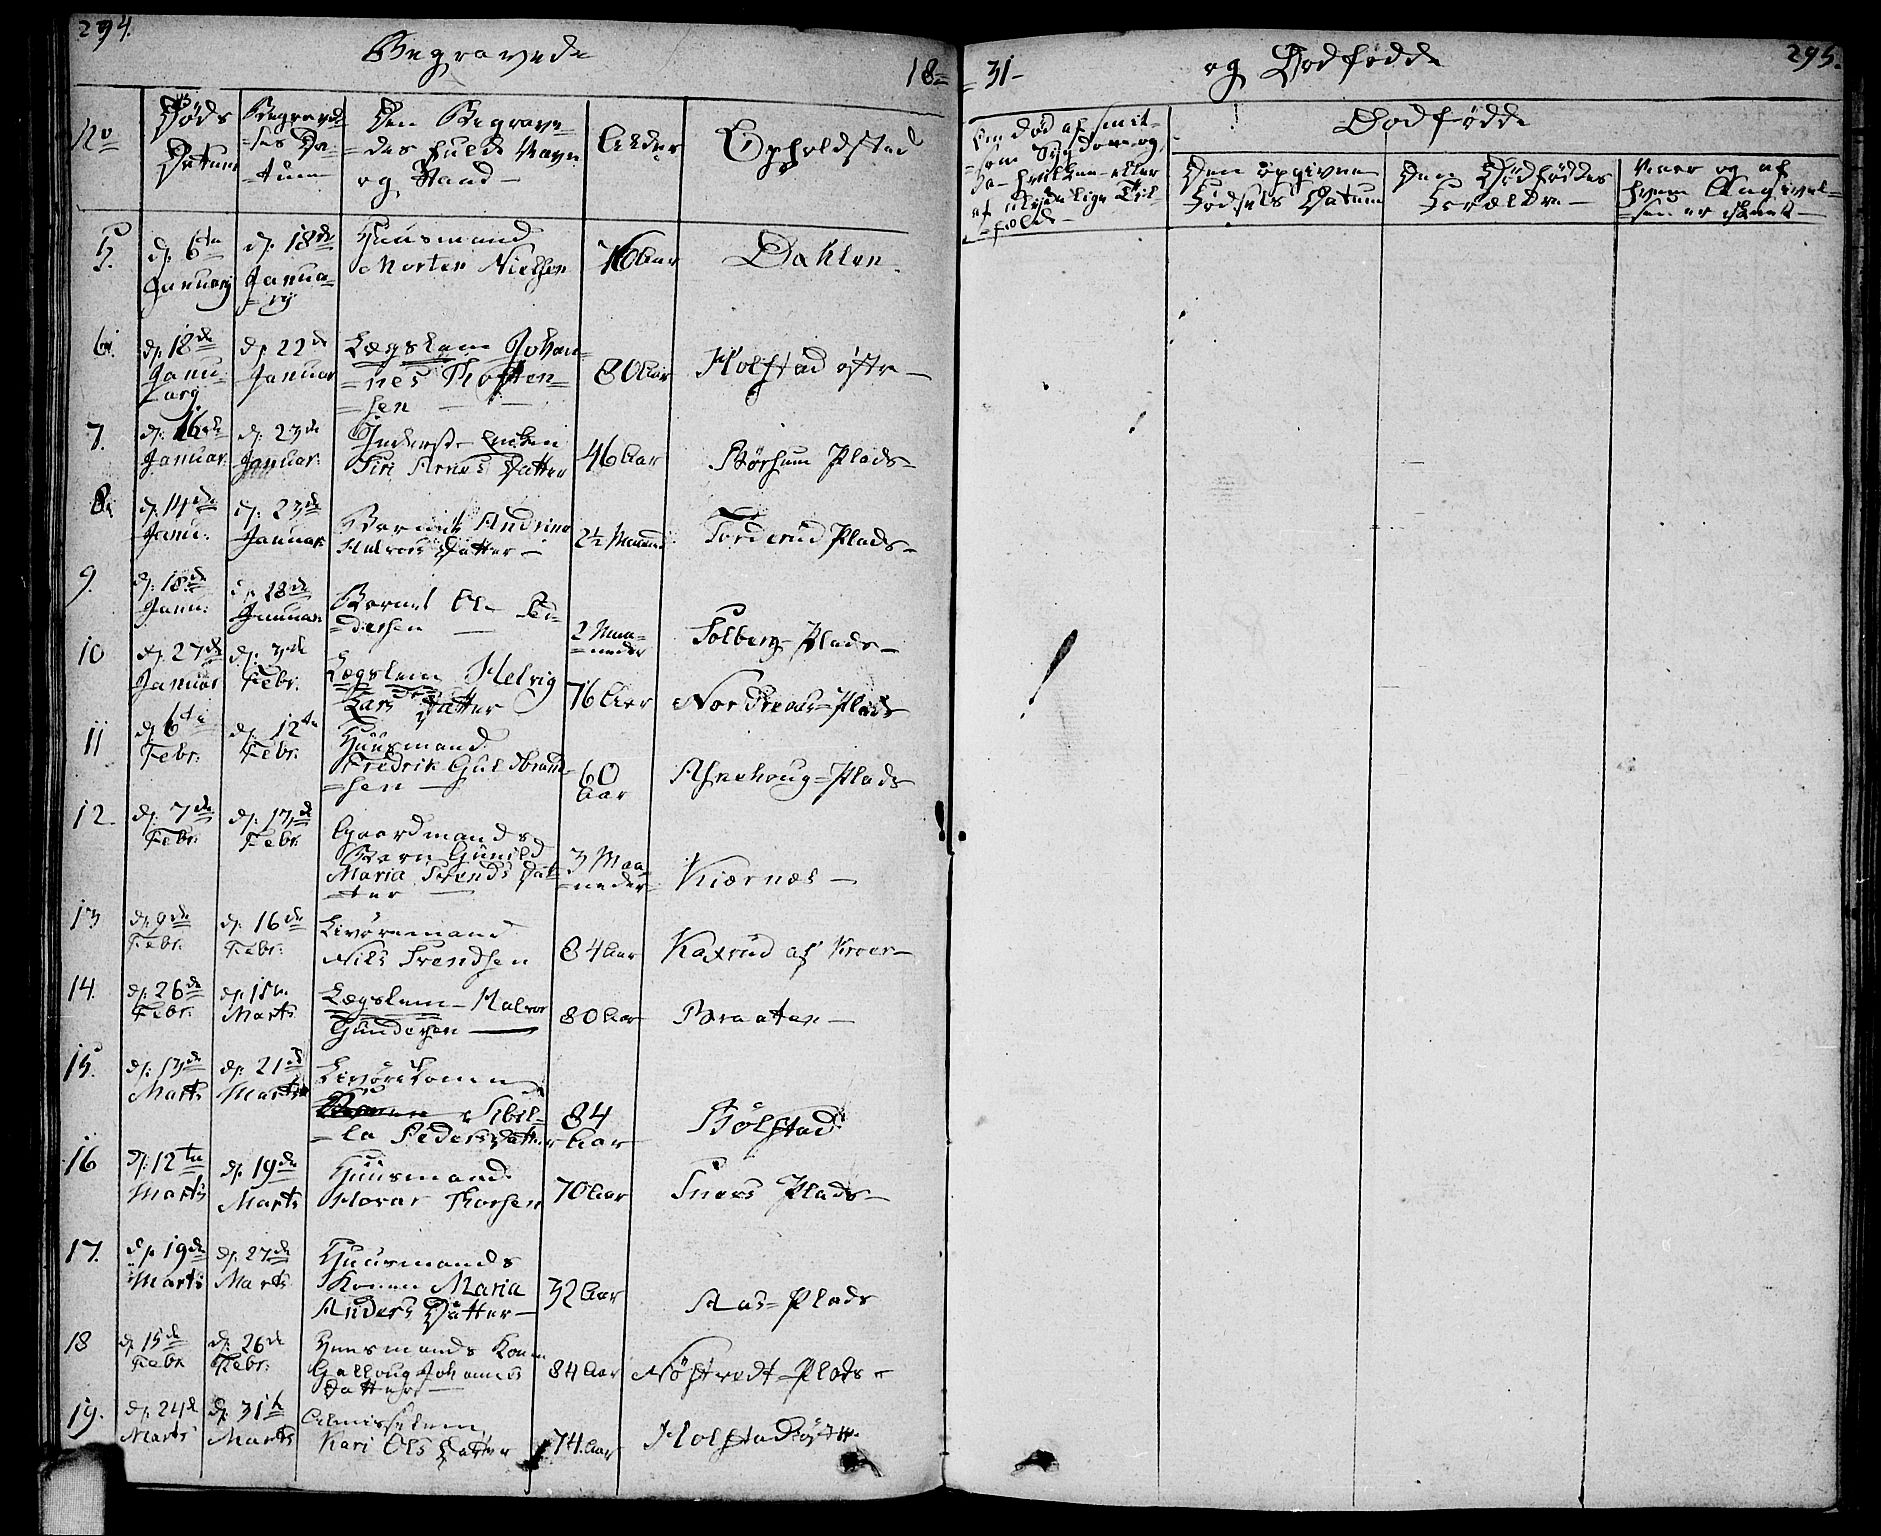 294.
Begravede
18=
No
Døds
Datum
Begravel=
=ses Da=
=tum
Den Begrave=
=des fulde Navn
og Stand
Alder
Opholdsted
5.
d. 6te
Januarj
d. 18de
Janua=
=rij
Huusmand
Morten Nielsen
76 Aar
Dahlen.
6.
d. 18de
Janu=
arj.
d. 22de
Januar
Lægslem Johan=
=nes Thosten=
=sen
80 Aar
Holstad østre
7.
d. 16de
Januar.
d. 23de
Januar.
Inderst Enken
Siri Arnes Datter
46 Aar
Børsum Plads
8.
d. 14de
Janu.
d. 23de
Januar.
Barnet Andrine
Halvors Datter
2½ Maaned
Forderud Plads
9.
d. 18de
Janu.
d. 28de
Januar.
Barnet Ole
=dersen
2 Maa=
=neder
Solberg=Plads
10
d. 27de
Januar
d. 3de
Febr.
Lægslem Helvig
Lars Datter
76 Aar
Nordreaas=Plads
11
d. 6te
Febr.
d. 12te
Febr.
Huusmand
Fredrik Gulbrand=
=sen
60
Aar
Ahnehoug=Plads
12.
d. 7de
Febr.
d. 17de
Febr.
Gaardmands
Barn Gunild
Maria Svends Dat=
=ter
3 Maa=
=neder
Kiærnæs
13
d. 9de
Febr.
d. 16de
Febr.
Livøremand
Nils Svendsen
84 Aar
Kaxrud af Kroer
14.
d. 26de
Febr.
d. 15de
Marts
Lægslem Halvor
Gundersen
80 Aar
Braaten
15.
d. 13de
Marts
d. 21de
Marts
Livørekonen
Sibil=
=la Peders Datter
84
Aar
Bølstad
16
d. 12te
Marts
d. 19de
Marts
Huusmand
Hovar Thorsen
70 Aar
Sners Plads
17.
d. 19de
Marts
d. 27de
Marts
Huusmands
Konen Maria
Anders Datter
32 Aar
Aas=Plads
18
d. 15de
Febr.
d. 26de
Febr.
Huusmands Konen
Gulloug Johannes
Datter
84 Aar
Nøstvedt=Plads
19.
d. 24de
Marts
d. 31te
Marts
Almisselem
Kari Ols Datter
74 Aar
Holstad østre
=31-
og Dødfødde
295.
Om død af smit=
=som Sygdom og
da hvilken eller
af ulykkelige Til=
=fælde
Dødfødde
Den opgivne
Fødsels Datum
Den Dødføddes
Forældre
Naar og af
hvem Angivel=
=sen er skeet